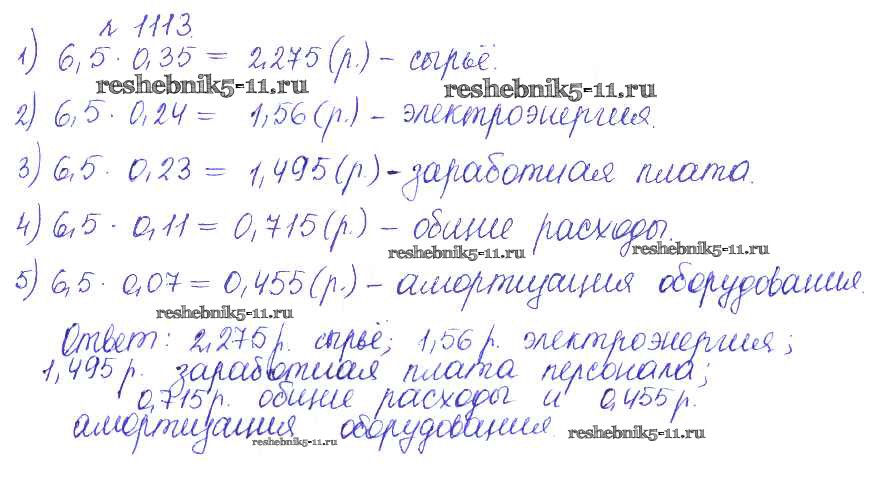 № 1113.
1) 6,5 · 0,35 = 2,275 (р.) – сырьё.
reshebnik5-11.ru reshebnik5-11.ru
2) 6,5 · 0,24 = 1,56 (р.) – электроэнергия.
3) 6,5 · 0,23 = 1,495 (р.) - заработная плата.
4) 6,5 · 0,11 = 0,715 (р.) – общие расходы.
reshebnik5-11.ru reshebnik5-11.ru
5) 6,5 · 0,07 = 0,455 (р.) – амортизация оборудования.
reshebnik5-11.ru
Ответ: 2,275 р. сырьё; 1,56 р. электроэнергия;
1,495 р. заработная плата персонала;
0,715 р. общие расходы и 0,455 р.
амортизация оборудования.
reshebnik5-11.ru reshebnik5-11.ru